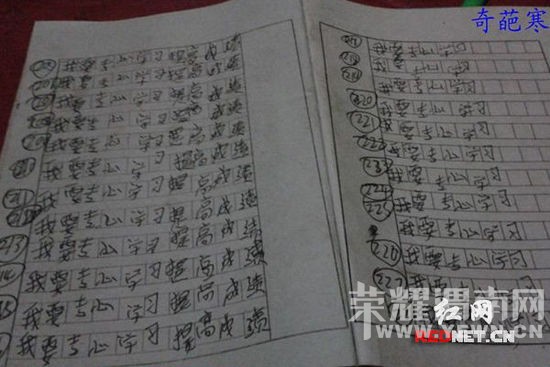 奇葩寒
我要专心学习提高成绩
我要专心学习提高成绩
我要专心学习提高成绩
我要专心学习提高成绩
我要专心学习提高成绩
我要专心学习提高成绩
211 我要专心学习提高成绩
212 我要专心学习提高成绩
213 我要专心学习提高成绩
14 我要专心学习提高成绩
15 我要专心学习提高成绩
我要专心学习提高成绩
217 我要专心学习
218 我要专心学习
219 我要专心学习
220 我要专心学习
221 我要专心学习
222 我要专心学习
223 我要专心学习
224 我要专心学习
225 我要专心学习
我要专心学习
226 我要专心学习
227 我要专心学习
荣耀渭南网
红网
REDNET.CN